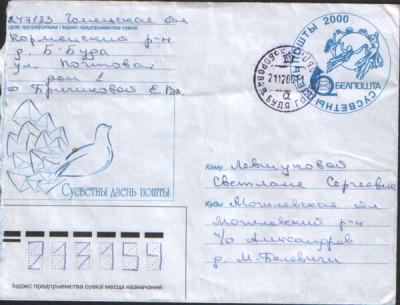 247183 Гомельская обл
Кормянский р-н
д. Б-Буда
ул Почтовая
дом 2
СУСВЕТНЫ ДЗЕНЬ ПОШТЫ 2000
БЕЛПОШТА
Сусветны дзень пошты
Каму Левшуковой
Светлане Сергеевне
Куды Могилевская обл
Могилевский р-н
п/о Александров
д. М. Белевичи
213154
Індэкс прадпрыемства сувязі месца назначэння